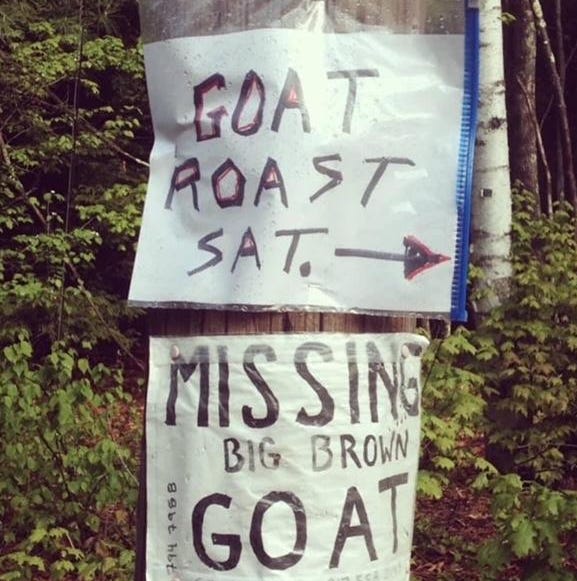 GOAT
ROAST
SAT.
MISSING
BIG BROWN
GOAT
794 7958